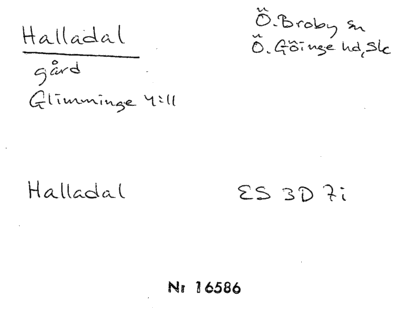 Halladal
Ö. Broby sn
Ö. Göinge hd, Sk
gård
Glimminge 4:11
Halladal
ES 3D 7i
Nr 16586